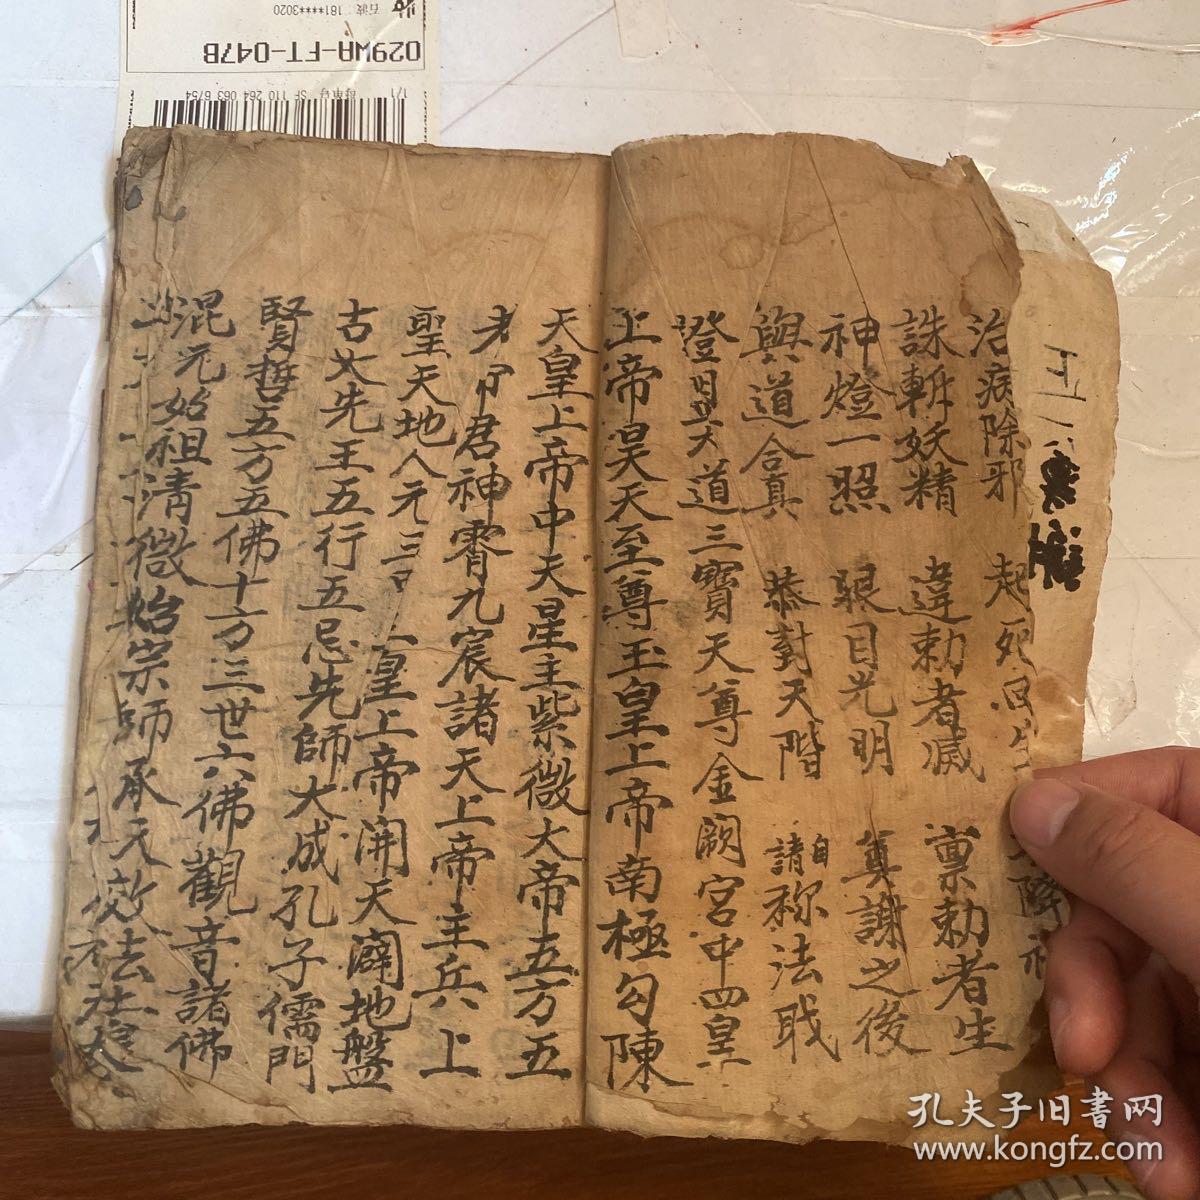 治病除邪 起死回生
誅斬妖精 違勅者滅 禀勅者生
神燈一照 眼目光明 真謝之後
與道合真 恭對天階 請自称法戝
澄𥁞大道三寶天尊金阙宮中四皇
上帝昊天至尊玉皇上帝南極勾陳
天皇上帝中天星主紫微大帝五方五
君神霄九宸諸天上帝主兵上
聖天地人元三 皇上帝開天闢地盤
古太先王五行五忌先師大成孔子儒門
賢哲五方五佛十方三世六佛觀音諸佛
混元始祖清微始宗師承天效法社
正一
029WA-FT-047B
181****3020
1/1
SF 110 264 063 6754
孔夫子旧書网
www.kongfz.com